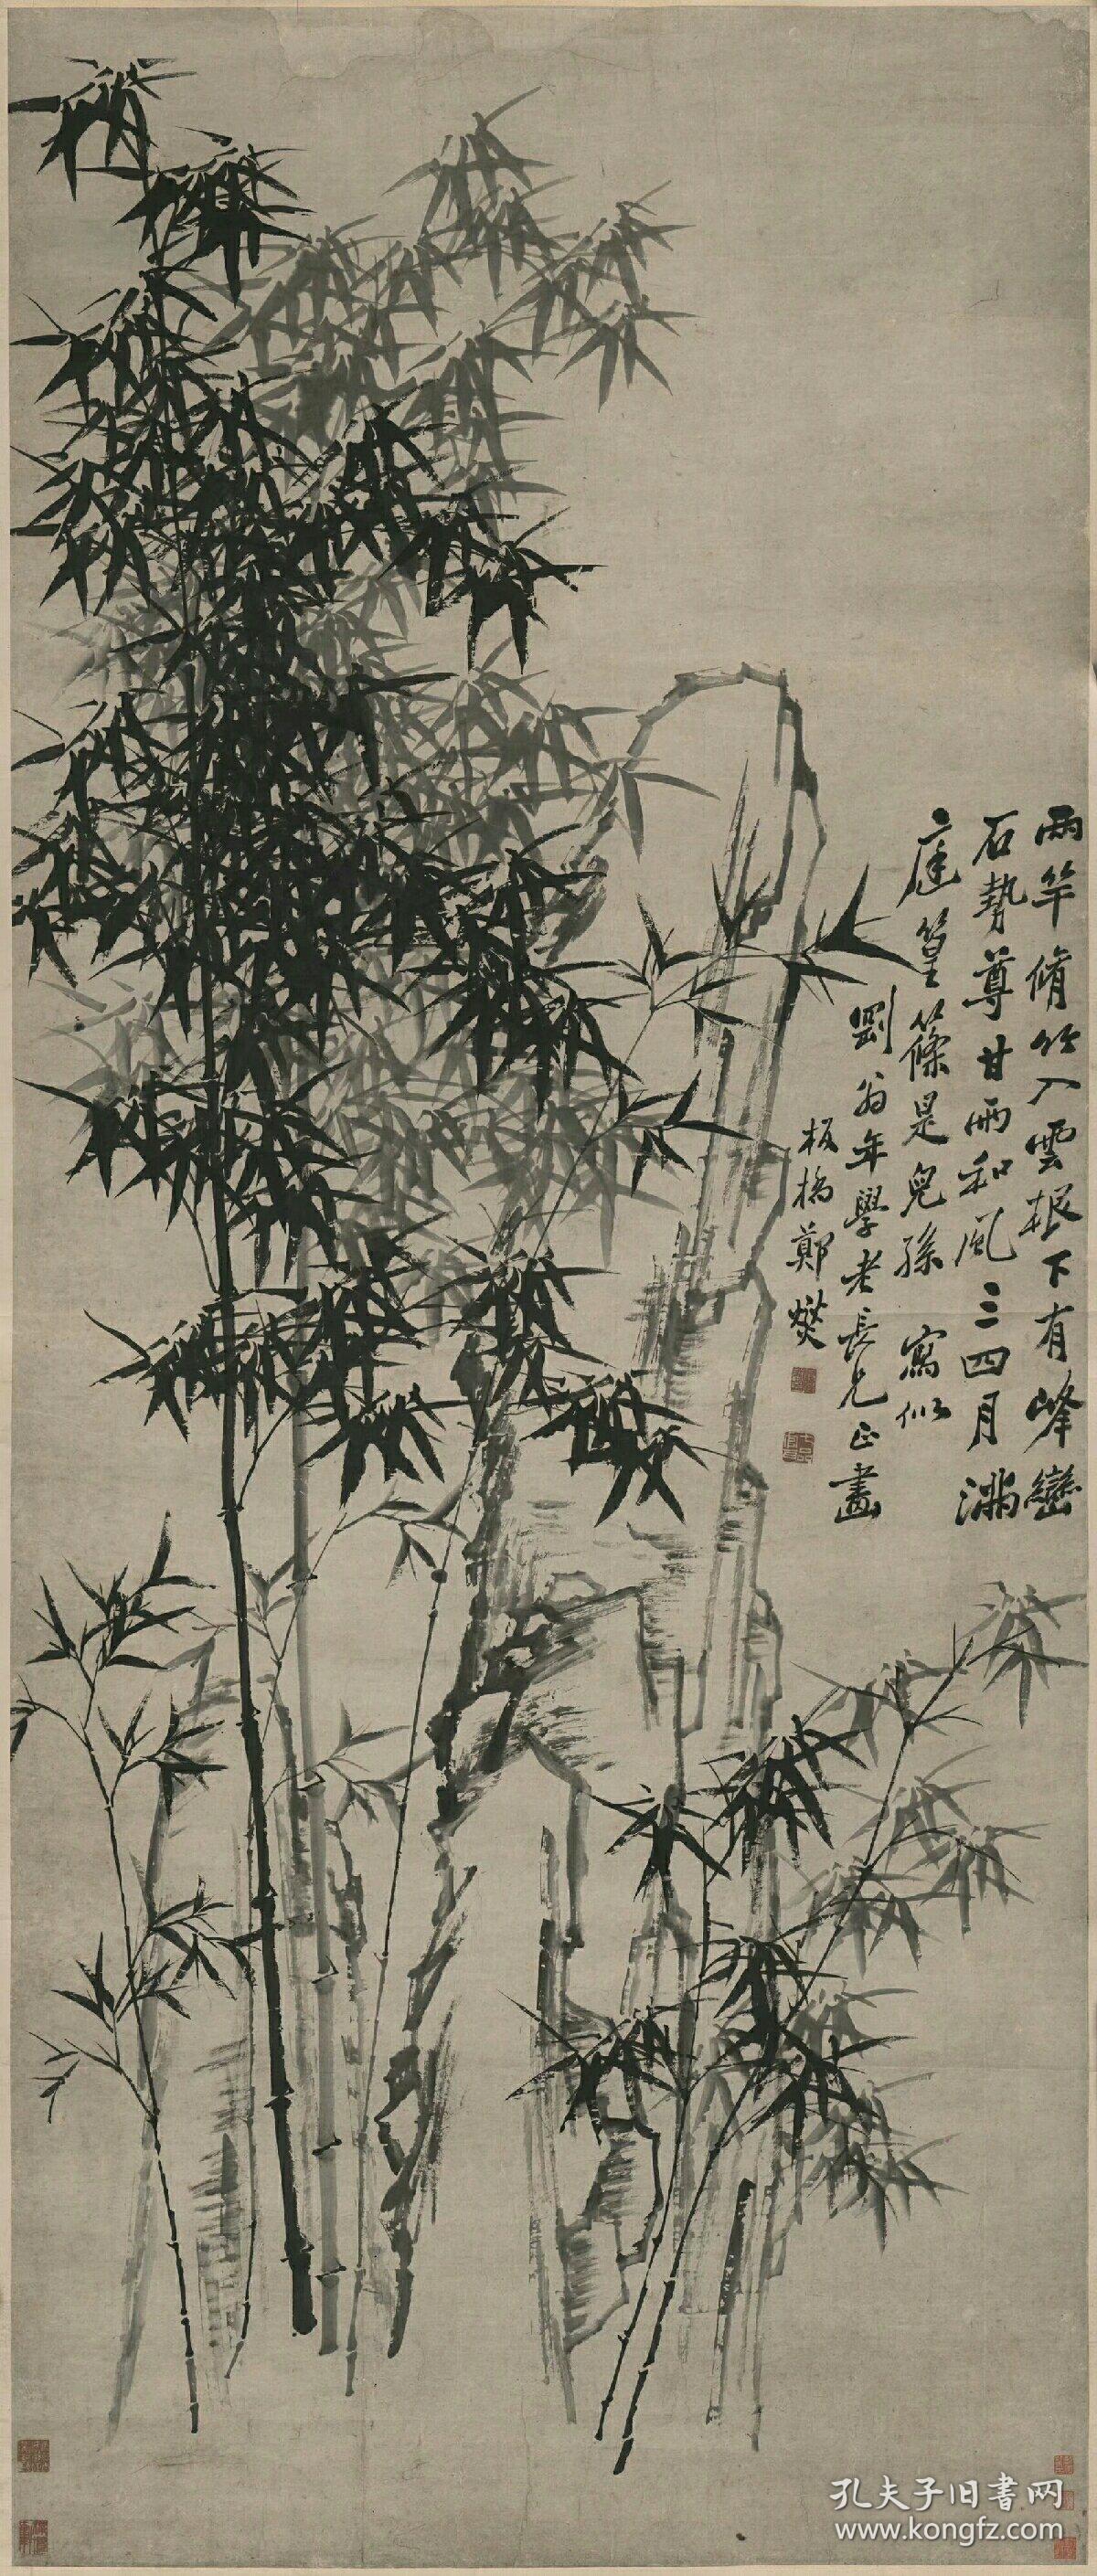 兩竿脩竹入雲根下有峰巒
石勢尊甘雨和風三四月滿
庭篁篠是兒孫 寫似
劉翁年學老長兄正畫
板橋鄭燮
孔夫子旧书网
www.kongfz.com